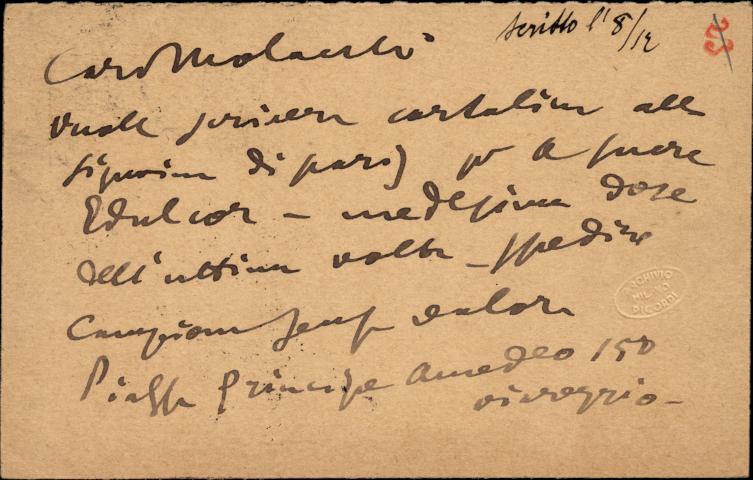 scritto l' 8/12
Caro Molaschi
Vuole scrivere cartolina alla
signorina di Parigi per avere
Edulcor – medesima dose
dell'ultima volta – spedire
Campione senza valore
Piazza Principe Amedeo 150
Viareggio –
ARCHIVIO
MILANO
RICORDI